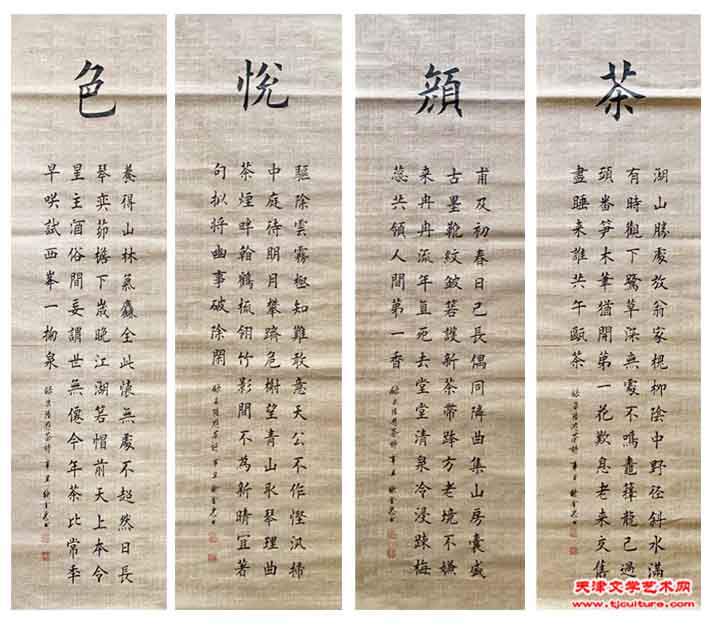 茶
湖山勝處放翁家槐柳陰中野徑斜水滿
有時觀下鷺草深無處不鳴鼃籜龍已過
頭番筍木筆猶開第一花歎息老來交舊
盡睡來誰共午甌茶
顏
甫及初春日已長偶同降曲集山房囊盛
古墨靴紋皴箬護新茶帶胯方老境不嫌
來冉冉流年直死去堂堂清泉冷浸疎梅
蕊共領人間第一香
悅
驅除雲霧極知難敢意天公不作慳汎掃
中庭待明月攀躋危榭望青山臥琴理曲
茶煙畔翰鶴梳翎竹影間不為新晴宜著
句拟將幽事破除閑
色
養得山林氣麤全此懷無處不超然日長
琴弈茆檐下歲晚江湖箬帽前天上本令
星主酒俗間妄謂世無僊今年茶比常年
早唉試西峯一掬泉
天津文学艺术网
www.tjculture.com